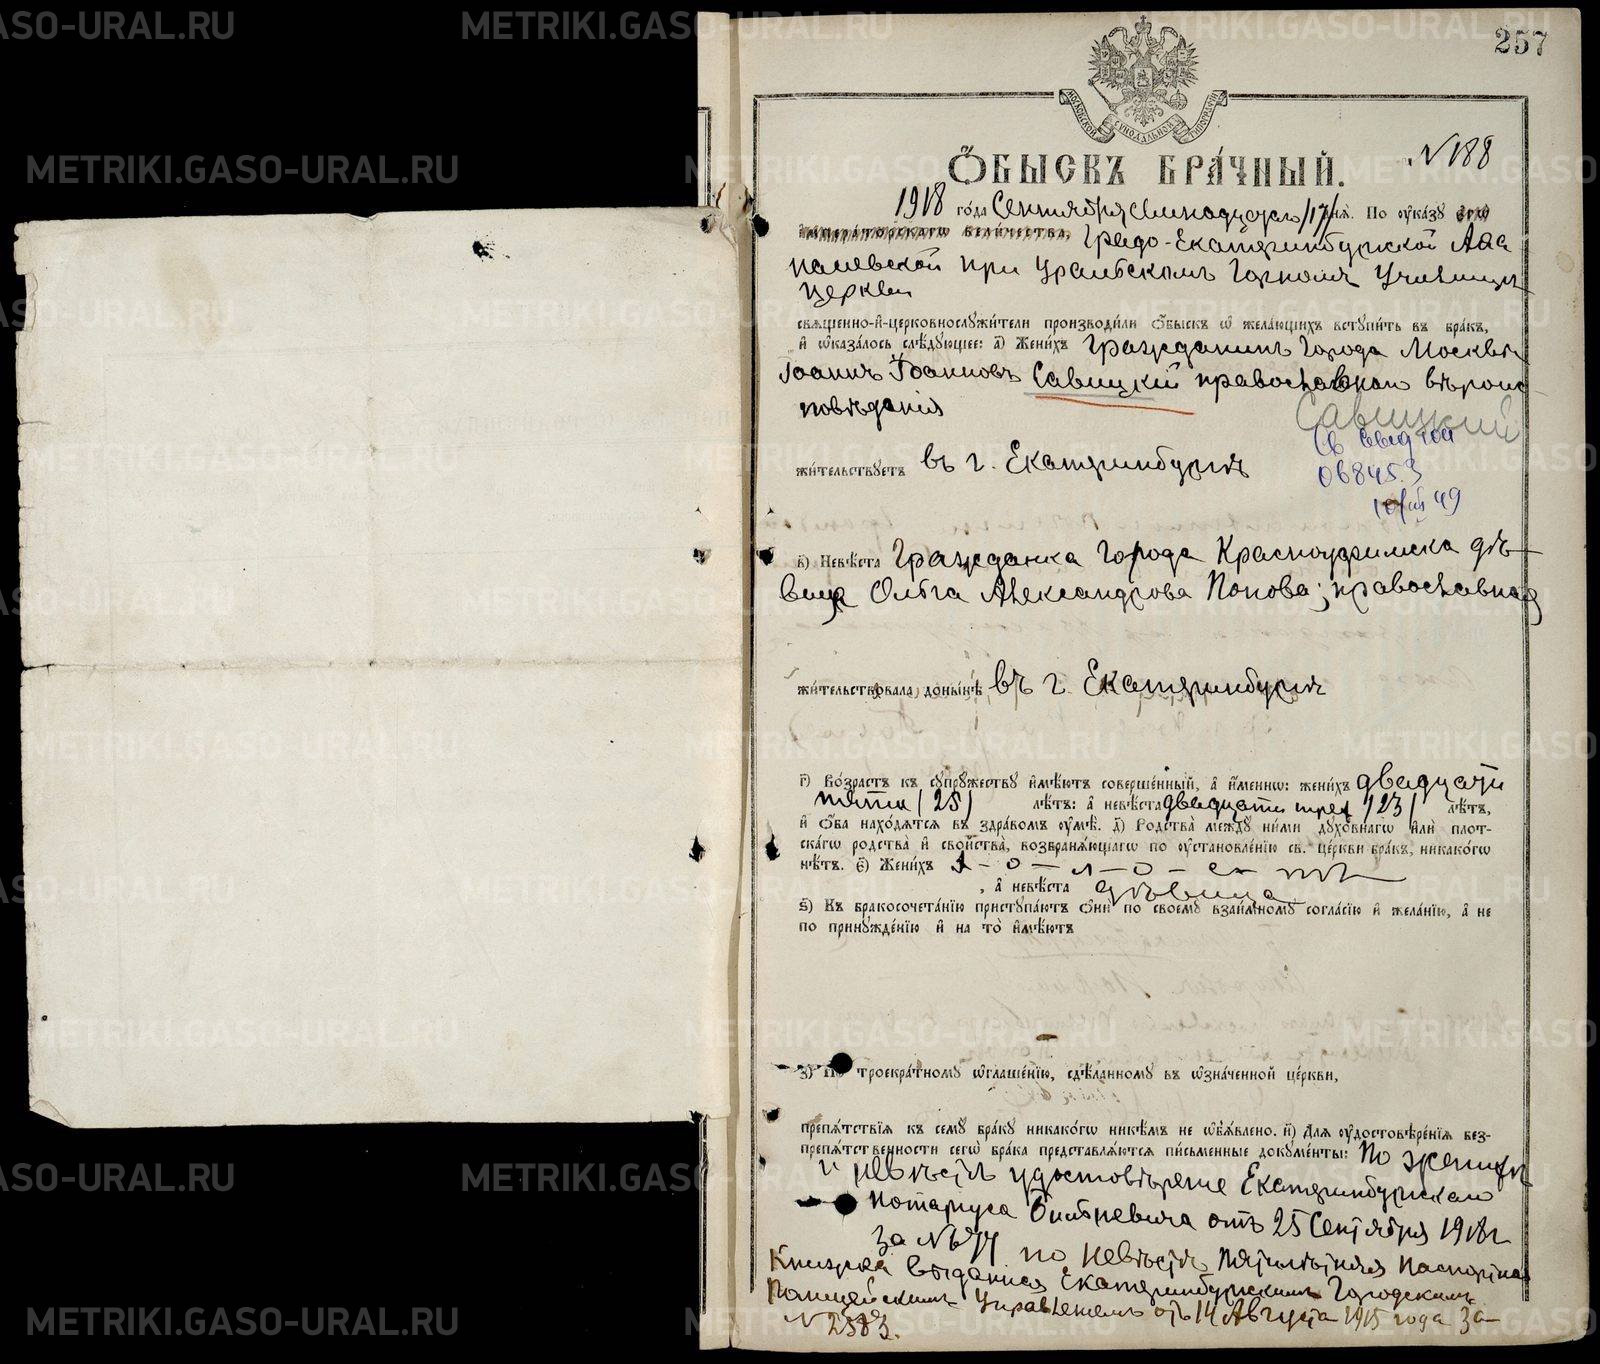 257
МОСКОВСКОЙ СѴНОДАЛЬНОЙ ТИПОГРАФІИ
Ѻ҆БЫСКЪ БРА́ЧНЫЙ.
№ 188
1918 го́да Сентября семнадцатаго /17/ днѧ̀. По ᲂу҆ка́зу є҆гѡ̀
и҆мпера́торскагѡ вели́чества, Градо-Екатеринбургской
при Уральскомъ Горномъ Училищѣ
Церкви
свѧще́нно-и҆-церковнослꙋжи́тели производи́ли ѻ҆́быскъ ѡ҆ жела́ющихъ встꙋпи́ть въ бра́къ,
и҆ ѡ҆каза́лось слѣ́дꙋющее: а҃) Жени́хъ Гражданинъ Города Москвы
Іоаннъ Іоанновъ Савицкій православнаго вѣроис-
повѣданія
Савицкий
св
068453
49
жи́тельствꙋетъ въ г. Екатеринбургѣ
в҃) Невѣ́ста Гражданка Города Красноуфимска дѣ-
вица Ольга Александрова Попова; православная
жи́тельствовала доны́нѣ въ г. Екатеринбургѣ
г҃) Во́зрастъ къ сꙋпрꙋ́жествꙋ и҆мѣ́ютъ соверше́нный, а҆ и҆́менно: жени́хъ двадцати
пяти /25/ лѣ́тъ: а҆ невѣ́ста двадцати трех /23/ лѣ́тъ,
и҆ ѻ҆́ба нахо́дѧтсѧ въ здра́вомъ ᲂу҆мѣ̀. д҃) Родства̀ междꙋ̀ ни́ми дꙋхо́внагѡ и҆лѝ плот-
ска́гѡ родства̀ и҆ сво́йства, возбранѧ́ющагѡ по ᲂу҆становле́нїю св. це́ркви бра́къ, никако́гѡ
нѣ́тъ. є҃) Жени́хъ х-о-л-о-с-тъ
, а҆ невѣ́ста дѣвица
ѕ҃) Къ бракосочета́нїю пристꙋпа́ютъ ѻ҆нѝ по своемꙋ̀ взаи́мномꙋ согла́сїю и҆ жела́нїю, а҆ не
по принꙋжде́нїю и҆ на то̀ и҆мѣ́ютъ
з҃) По троекра́тномꙋ ѡ҆глаше́нїю, сдѣ́ланномꙋ въ ѡ҆зна́ченной це́ркви,
препѧ́тствїѧ къ семꙋ̀ бра́кꙋ никако́гѡ никѣ́мъ не ѡ҆б̾ѧ́влено. и҃) Длѧ ᲂу҆достовѣре́нїѧ без-
препѧ́тственности сегѡ̀ бра́ка представлѧ́ютсѧ пи́сьменные докꙋме́нты: По женихѣ
и невѣстѣ удостовѣреніе Екатеринбургскаго
нотариуса отъ 25 Сентября 1918 г
за №
по невѣстѣ пятилѣтняя паспортная
Книжка выданная Екатеринбургскимъ Городскимъ
Полицейскимъ Управленіемъ отъ 14 Августа 1915 года за
№ 2583.
METRIKI.GASO-URAL.RU